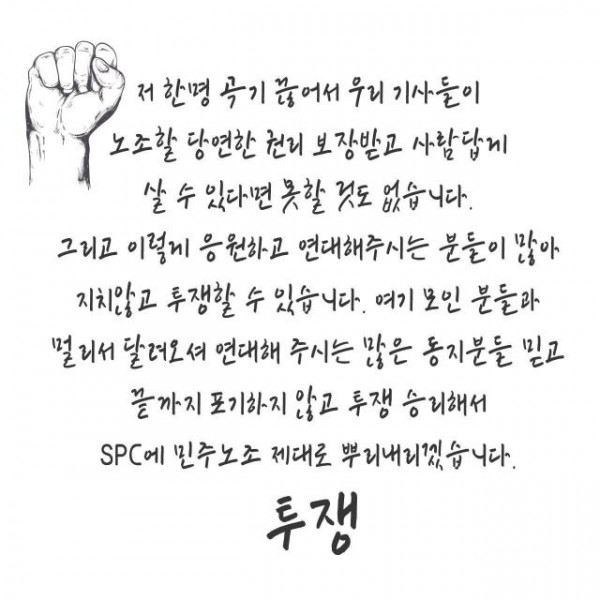 저 한명 곡기 끊어서 우리 기사들이
노조할 당연한 권리 보장받고 사람답게
살 수 있다면 못할 것도 없습니다.
그리고 이렇게 응원하고 연대해주시는 분들이 많아
지치않고 투쟁할 수 있습니다. 여기 모인 분들과
멀리서 달려오셔 연대해 주시는 많은 동지분들 믿고
끝까지 포기하지 않고 투쟁 승리해서
SPC에 민주노조 제대로 뿌리내리겠습니다.
투쟁